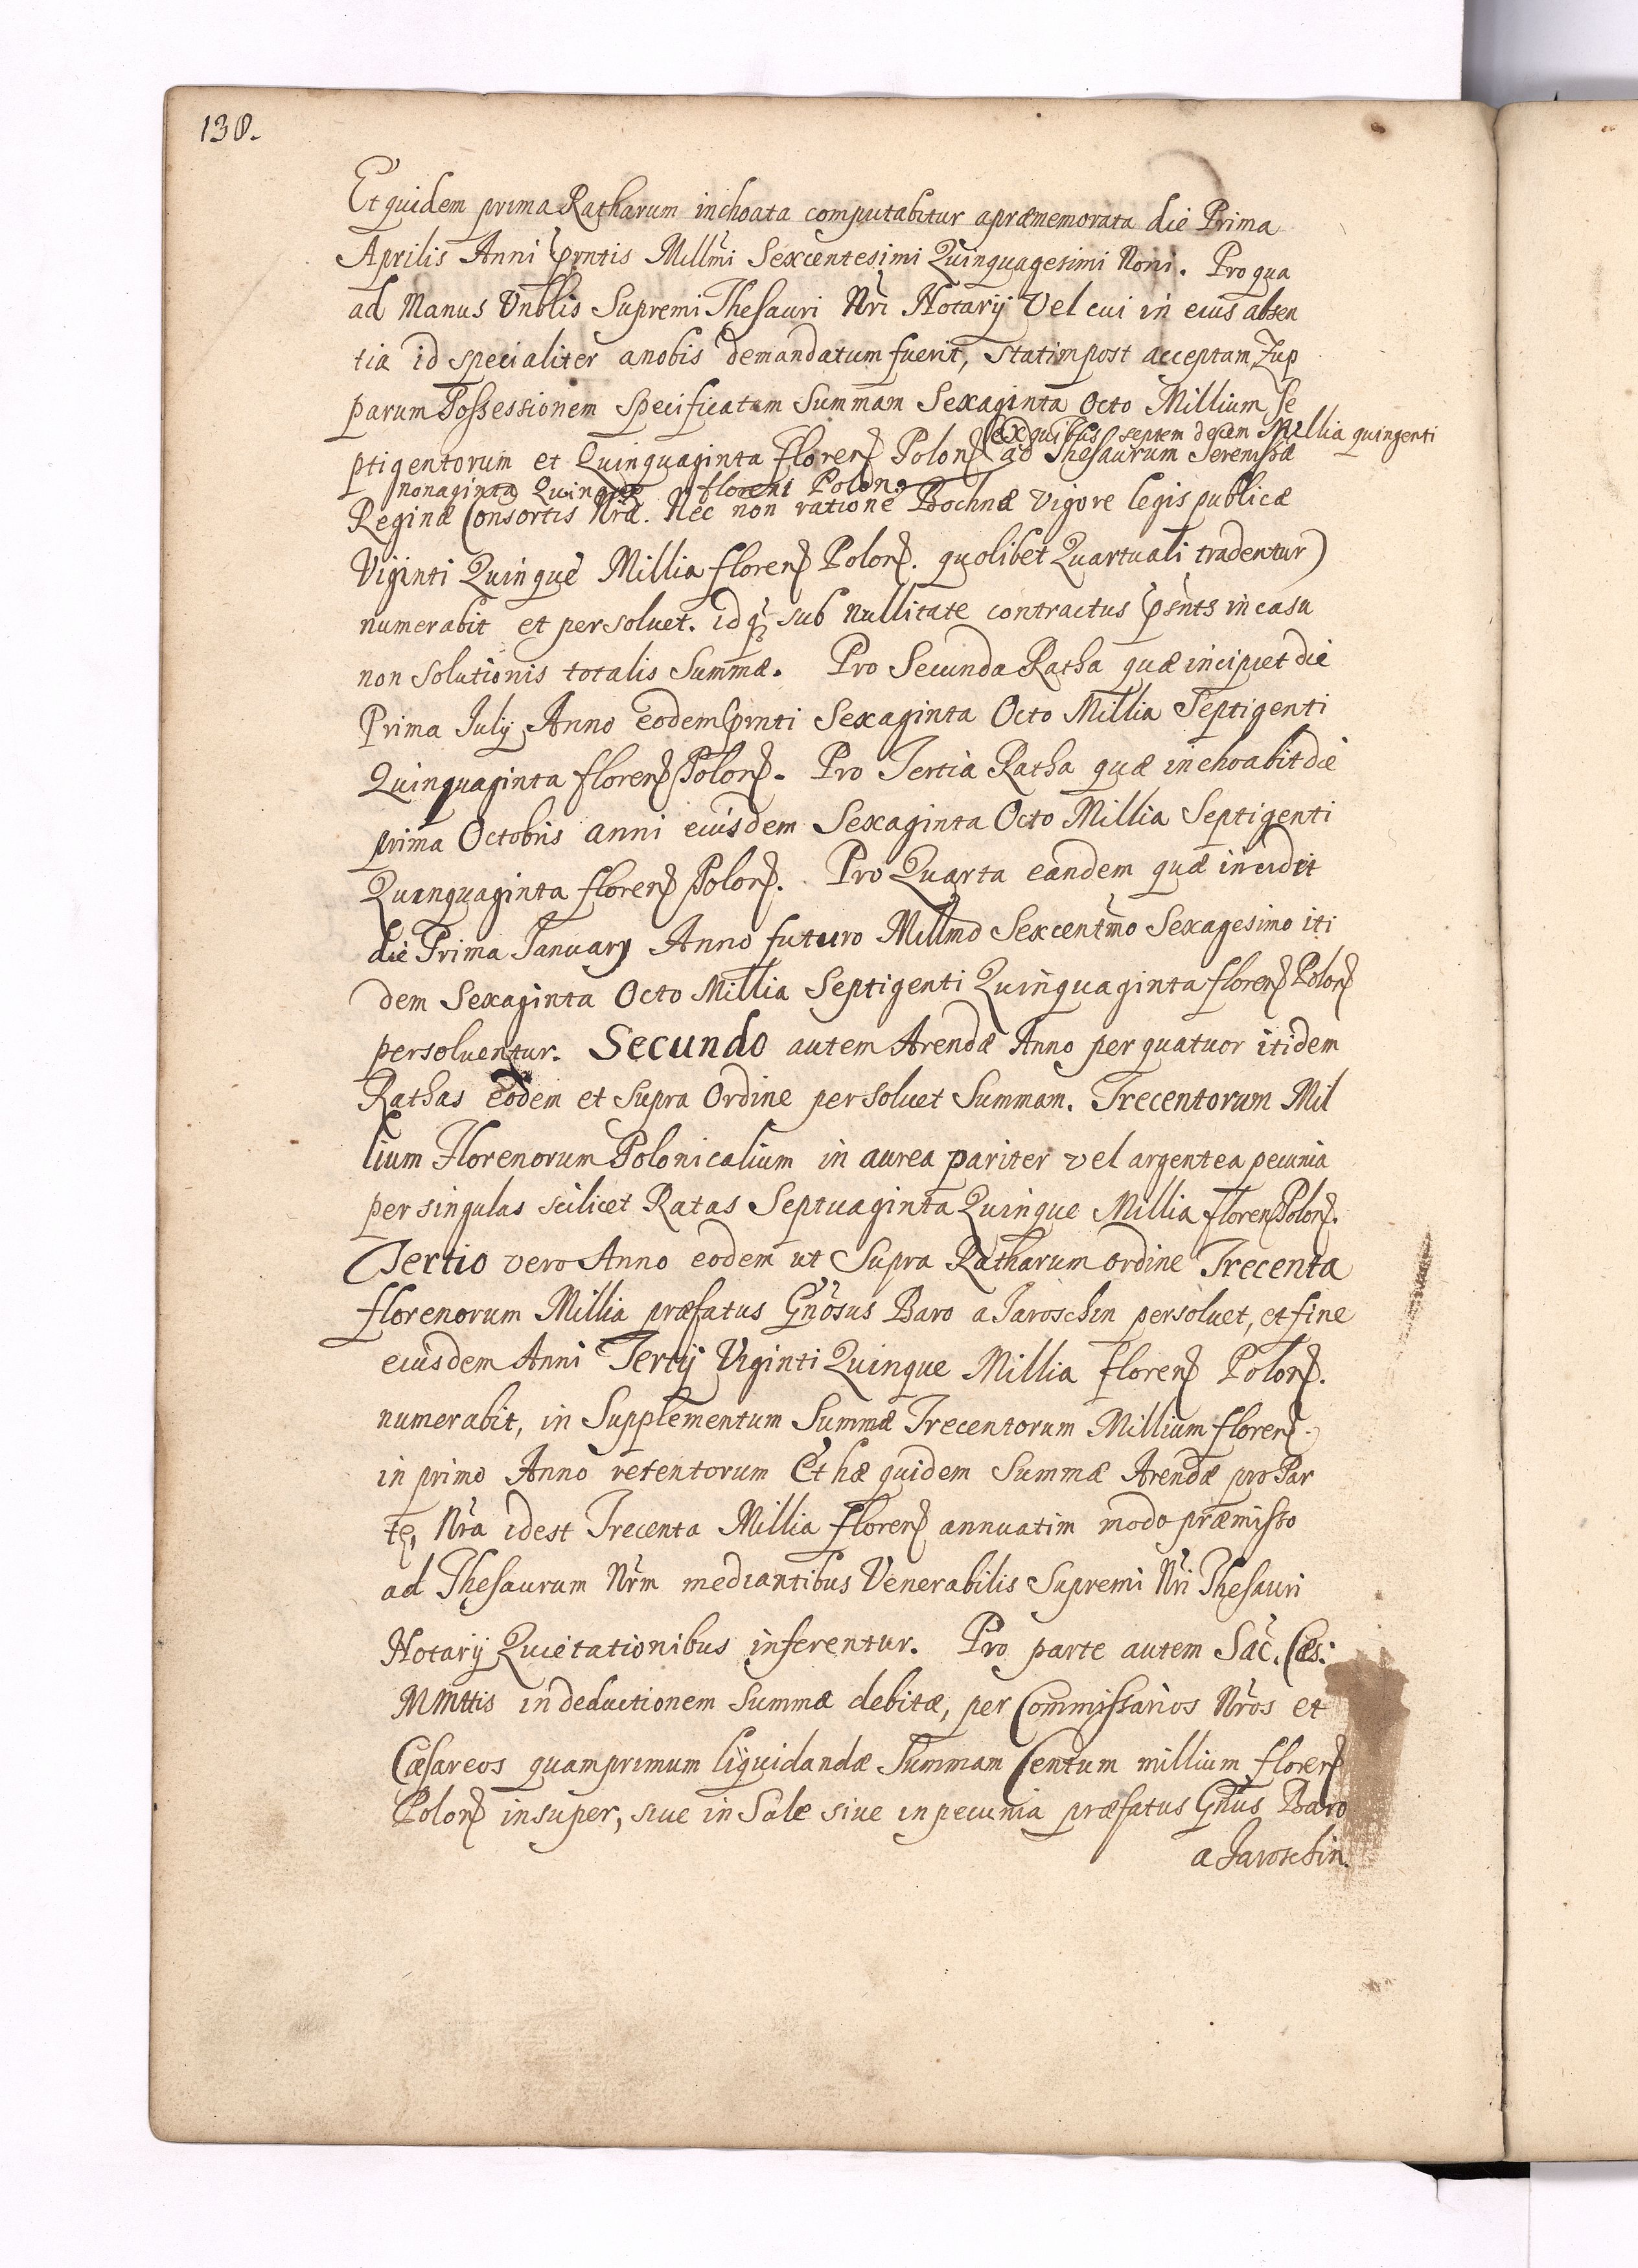 130.
Et quidem prima Ratharum inchoata computabitur apræmemorata die Prima
Aprilis Anni pñtis Millmi Sexcentesimi Quinquagesimi Noni. Pro qua
ad Manus Vnblis Supremi Thesauri Nri Notarij Vel cui in eius absen
tia id specialiter anobis demandatum fuerit, statim post acceptam Zup
parum Possessionem specificatam Summam Sexaginta Octo Millium Se
(ex quibus septem decem Millia quingenti
ptigentorum et Quinquaginta floren Polon ad Thesaurum Serenissæ
nonaginta Quinque floreni Polon.
Reginæ Consortis Nræ. Nec non ratione Bochnæ vigore legis publicæ
Viginti Quinque Millia floren Polon. quolibet Quartuali tradentur)
numerabit et persoluet. idq sub nullitate contractus psñts in casu
non solutionis totalis Summæ. Pro Secunda Ratha quæ incipiet die
Prima Iulij Anno eodem pñti Sexaginta Octo Millia Septigenti
Quinquaginta floren Polon. Pro Tertia Ratha quæ inchoabit die
prima Octobris anni eiusdem Sexaginta Octo Millia Septigenti
Quinquaginta floren Polon. Pro Quarta eandem quæ incidit
die Prima Ianuarÿ Anno futuro Millmo Sexcentmo Sexagesimo iti
dem Sexaginta Octo Millia Septigenti Quinquaginta floren Polon
persoluentur. Secundo autem Arendæ Anno per quatuor itidem
Rathas eodem et supra Ordine persoluet Summam. Trecentorum Mil
lium Florenorum Polonicalium in aurea pariter vel argentea pecunia
per singulas scilicet Ratas Septuaginta Quinque Millia floren Polon.
Tertio vero Anno eodem ut Supra Ratharum ordine Trecenta
florenorum Millia præfatus Gnosus Baro a Iaroschin persoluet, et fine
eiusdem Anni Tertij Viginti Quinque Millia floren Polon.
numerabit, in Supplementum Summæ Trecentorum Millium floren.
in primo Anno retentorum Et hæ quidem Summæ Arendæ pro Par
te, Nra idest Trecenta Millia floren annuatim modo præmisso
ad Thesaurum Nrm mediantibus Venerabilis Supremi Nri Thesauri
Notarij Quietationibus inferentur. Pro parte autem Sac. Cæs:
Mmttis in deductionem Summæ debitæ, per Commissarios Nros et
Cæsareos quamprimum liquidandæ Summam Centum millium floren
Polon insuper, siue in Sale siue in pecunia præfatus Gnus Baro
a Iaroschin.